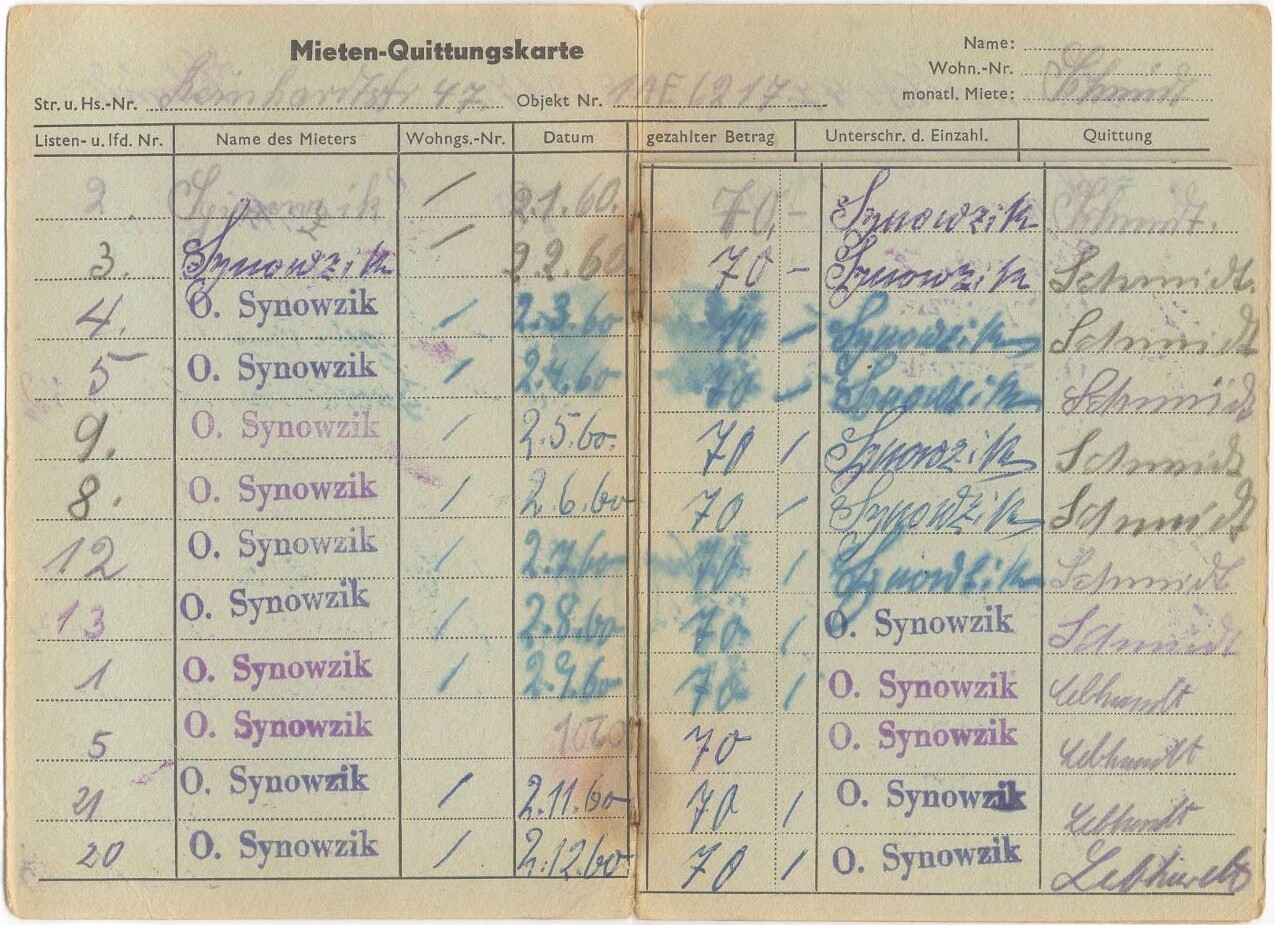 Mieten-Quittungskarte
Name:
Wohn.-Nr.
Str. u. Hs.-Nr. 47 Objekt Nr. monatl. Miete: Schmidt
Listen- u. lfd. Nr. Name des Mieters Wohngs.-Nr. Datum gezahlter Betrag Unterschr. d. Einzahl. Quittung
2. Synowzik / 2.1.60. 70,- Synowzik Schmidt.
3. Synowzik / 2.2.60 70 - Synowzik Schmidt.
4. O. Synowzik / 2.3.60 70 - Synowzik Schmidt
5 O. Synowzik / 2.4.60 70 - Synowzik Schmidt
9. O. Synowzik / 2.5.60. 70 / Synowzik Schmidt
8. O. Synowzik / 2.6.60 70 / Synowzik Schmidt
12 O. Synowzik / 2.7.60 70 / Synowzik Schmidt
13 O. Synowzik / 2.8.60 70 / O. Synowzik Schmidt
1 O. Synowzik / 2.9.60 70 / O. Synowzik
5 O. Synowzik 70 O. Synowzik
21 O. Synowzik / 2.11.60 70 / O. Synowzik
20 O. Synowzik / 2.12.60 70 / O. Synowzik